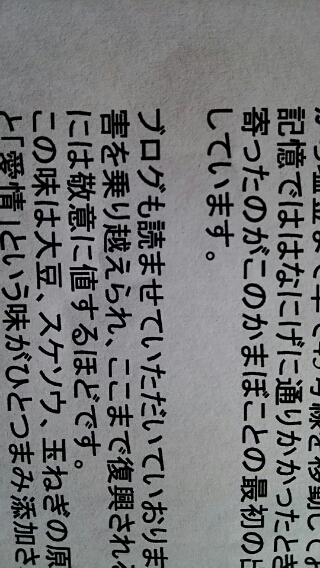 塩釜まで車で45号線を移動して
記憶でははなにげに通りかかったとき
寄ったのがこのかまぼことの最初の
しています。
ブログも読ませていただいていおりま
害を乗り越えられ、ここまで復興される
には敬意に値するほどです。
この味は大豆、スケソウ、玉ねぎの原
と「愛情」という味がひとつまみ添加さ